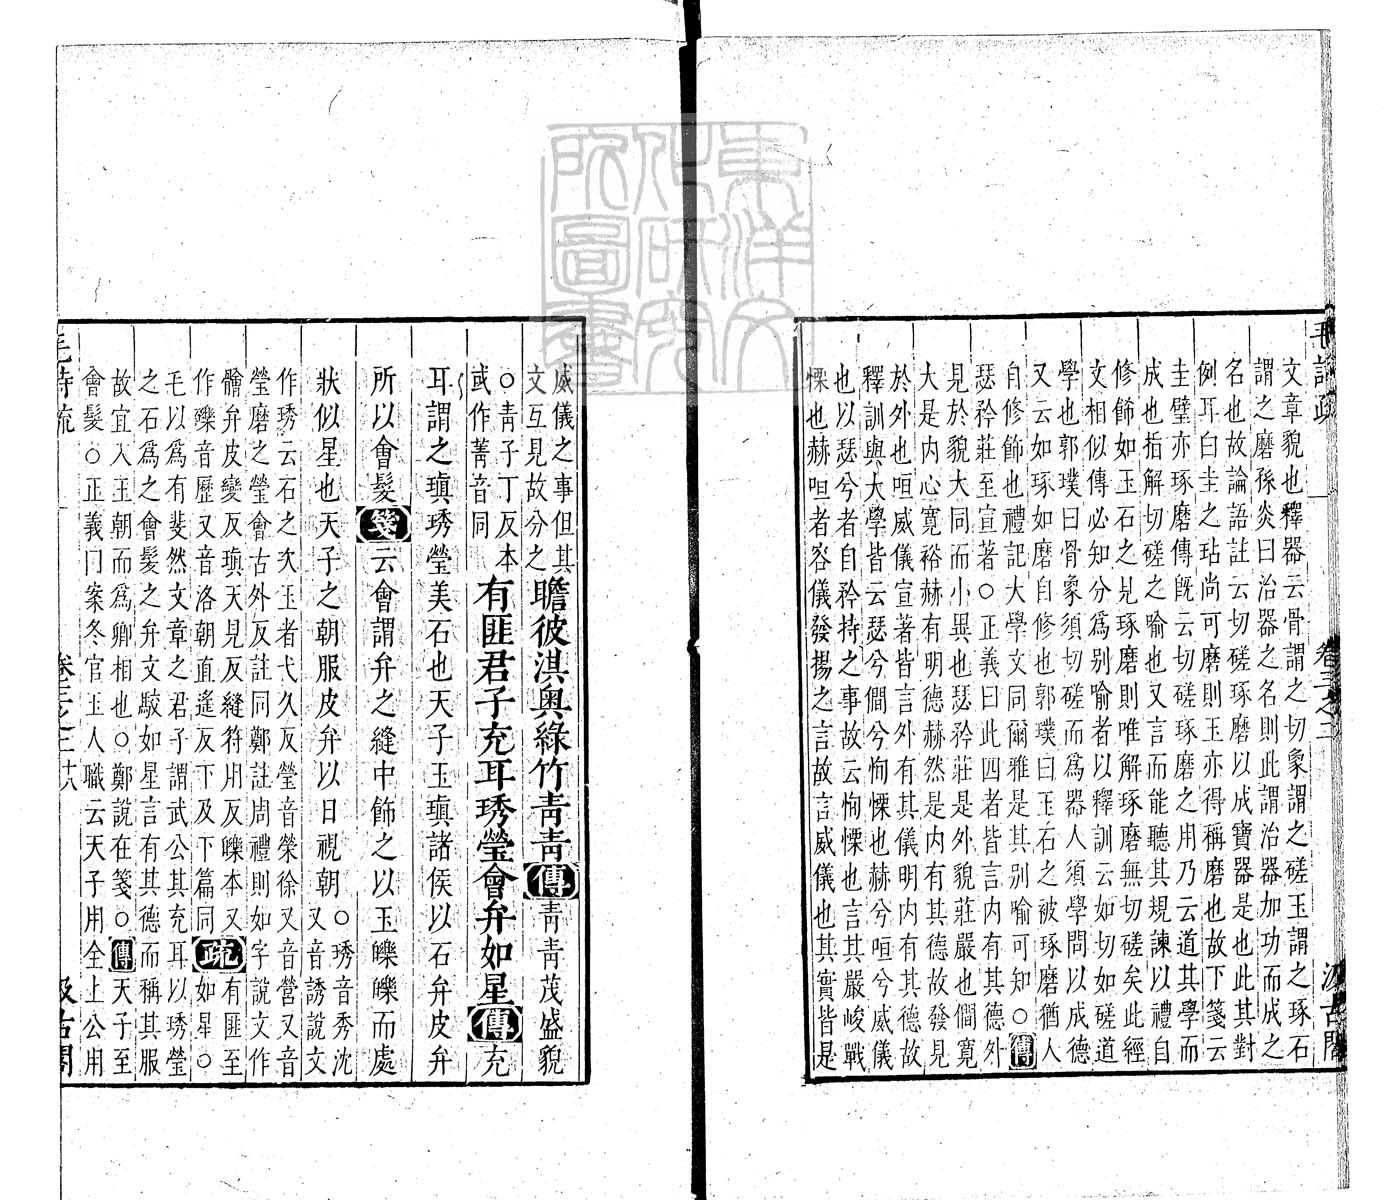 毛詩疏 卷三之二 汲古閣
文章貌也釋器云骨謂之切象謂之磋玉謂之琢石
謂之磨孫炎曰治器之名則此謂治器加功而成之
名也故論語註云切磋琢磨以成寶器是也此其對
例耳白圭之玷尚可磨則玉亦得稱磨也故下箋云
圭璧亦琢磨傳旣云切磋琢磨之用乃云道其學而
成也指解切磋之喻也又言而能聽其規諫以禮自
修飾如玉石之見琢磨則唯解琢磨無切磋矣此經
文相似傳必知分為别喻者以釋訓云如切如磋道
學也郭璞曰骨象須切磋而為器人須學問以成德
又云如琢如磨自修也郭璞曰玉石之被琢磨猶人
自修飾也禮記大學文同爾雅是其别喻可知○傳
瑟矜莊至宣著○正義曰此四者皆言内有其德外
見於貌大同而小異也瑟矜莊是外貌莊嚴也僩寛
大是内心寛裕赫有明德赫然是内有其德故發見
於外也咺威儀宣著皆言外有其儀明内有其德故
釋訓與大學皆云瑟兮僩兮恂慄也赫兮咺兮威儀
也以瑟兮者自矜持之事故云恂慄也言其嚴峻戰
慄也赫咺者容儀發揚之言故言威儀也其實皆是
威儀之事但其
文互見故分之
瞻彼淇奥綠竹青青傳青青茂盛貌
○青子丁反本
或作菁音同
有匪君子充耳琇瑩會弁如星傳充
耳謂之瑱琇瑩美石也天子玉瑱諸侯以石弁皮弁
所以會髪箋云會謂弁之縫中飾之以玉皪皪而處
狀似星也天子之朝服皮弁以日視朝
○琇音秀沈
又音誘說文
作琇云石之次玉者弋久反瑩音榮徐又音營又音
瑩磨之瑩會古外反註同鄭註周禮則如字說文作
䯤弁皮變反瑱天見反縫符用反皪本又
作礫音歴又音洛朝直遙反下及下篇同
疏有匪至
如星○
毛以為有斐然文章之君子謂武公其充耳以琇瑩
之石為之會髪之弁文駮如星言有其德而稱其服
故宜入王朝而為卿相也○鄭說在箋○傳天子至
會髪○正義曰案冬官玉人職云天子用全上公用
毛詩疏 卷三之二 十八 汲古閣
東洋文化研究所圖書